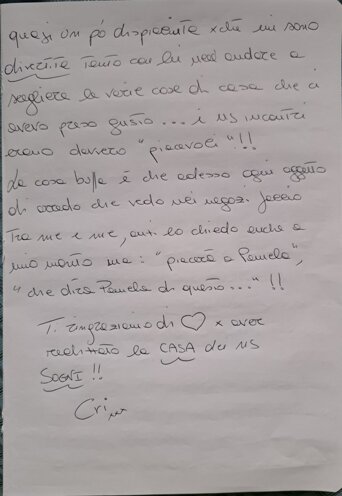 quasi un pò dispiaciuta xchè mi sono
divertita tanto con lei nell'andare a
scegliere le varie cose di casa che ci
avevo preso gusto... i ns incontri
erano davvero "piacevoli"!!!
La cosa buffa è che adesso ogni oggetto
di arredo che vedo nei negozi faccio
tra me e me, anzi lo chiedo anche a
mio marito ma: "piacerà a Pamela",
"che dirà Pamela di questo..."!!
Ti ringraziamo di ♡ x aver
realizzato la CASA dei NS
SOGNI!!
Cri